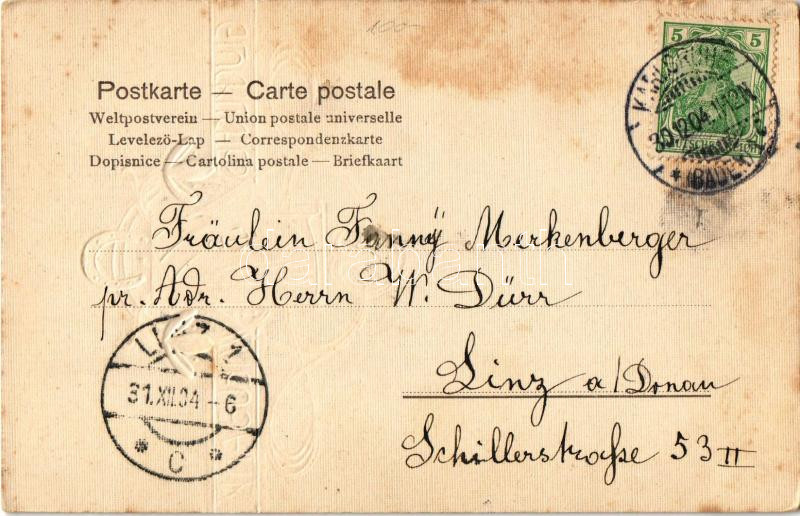 100-
5 5
KARLSRUHE
30.12.04.
* (BADEN) *
Postkarte — Carte postale
Weltpostverein — Union postale universelle
Levelezö-Lap — Correspondenzkarte
Dopisnice — Cartolina postale — Briefkaart
Fräulein Fanny Merkenberger
pr. Adr. Herrn W. Dürr
Linz a/Donau
Schillerstraße 53 II
LINZ 1
31.XII.04-6
* C *